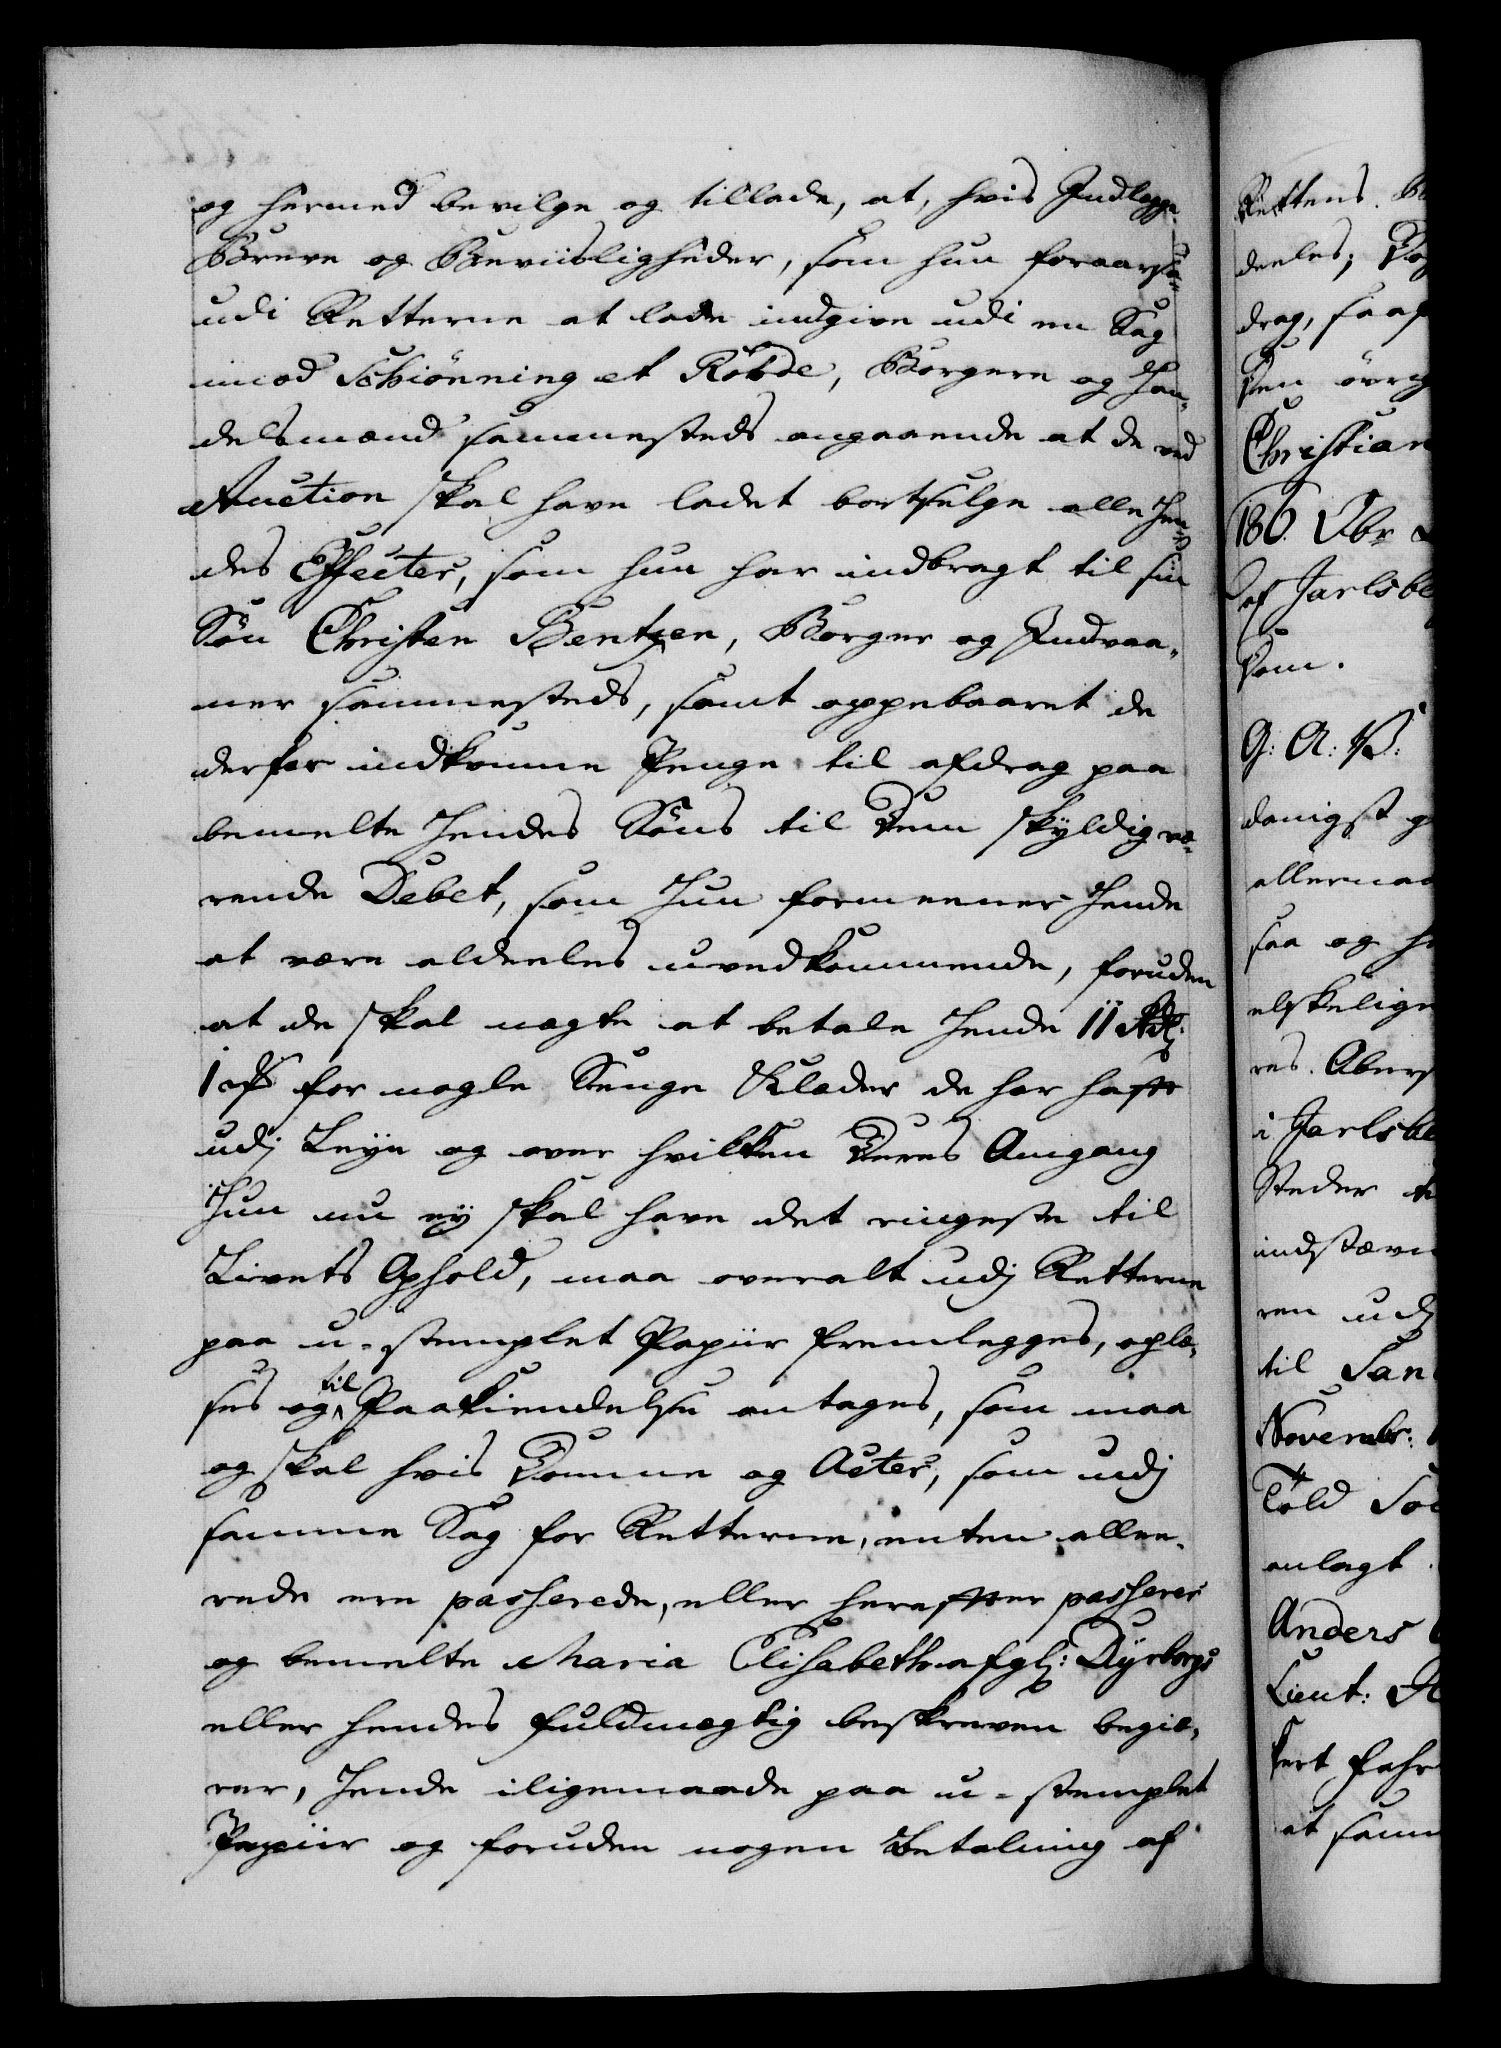 og hermed bevilge og tillade, at, hvis Indlegge
Breve og Beviisligheder, som hun foraarsages
udi Retterne at lade indgive udi en Sag
imod Schiønning et Robde, Borgere og Han-
delsmænd sammesteds angaaende at de ved
Auction skal have ladet bortselge alle Hen-
des Effecter, som hun har indbragt til sin
Søn Christen Bentzen, Borger og Indvaa-
ner sammesteds, samt oppebaaret de
derfor indkomne Penge til afdrag paa
bemelte Hendes Søns til Dem skyldig væ-
rende Debet, som Hun formeener Hende
at være aldeeles uvedkommende, foruden
at de skal nægte at betale Hende 11 Rdl:
1 ₰ for nogle Senge Klæder de har hafft
udj Leye og over hvilken Deres Omgang
Hun nu ey skal have det ringeste til
Livets Ophold, maa overalt udj Retterne
paa u-stemplet Papiir fremlegges, oplæ-
ses og til Paakiendelse antages, som maa
og skal hvis Domme og Acter, som udj
samme Sag for Retterne, enten allee-
rede ere passerede, eller herefter passerer
og bemelte Maria Elisabeth afgl: Dyrborgs
eller hendes fuldmægtig beskreven begiæ-
rer, Hende iligemaade paa u-stemplet
Papiir og foruden nogen Betaling af
Rettens
deeles;
drag, saa
Den øvrig
Christian
180. Obr
af Jarlsbe
Dom.
G: A: V:
danigst
allernaa
saa og
elskelige
res.
i Jarlsbe
Steder
indstævn
ren udj
til San
Novembr:
Told
anlagt
Anders
Lieut:
fert
at samm